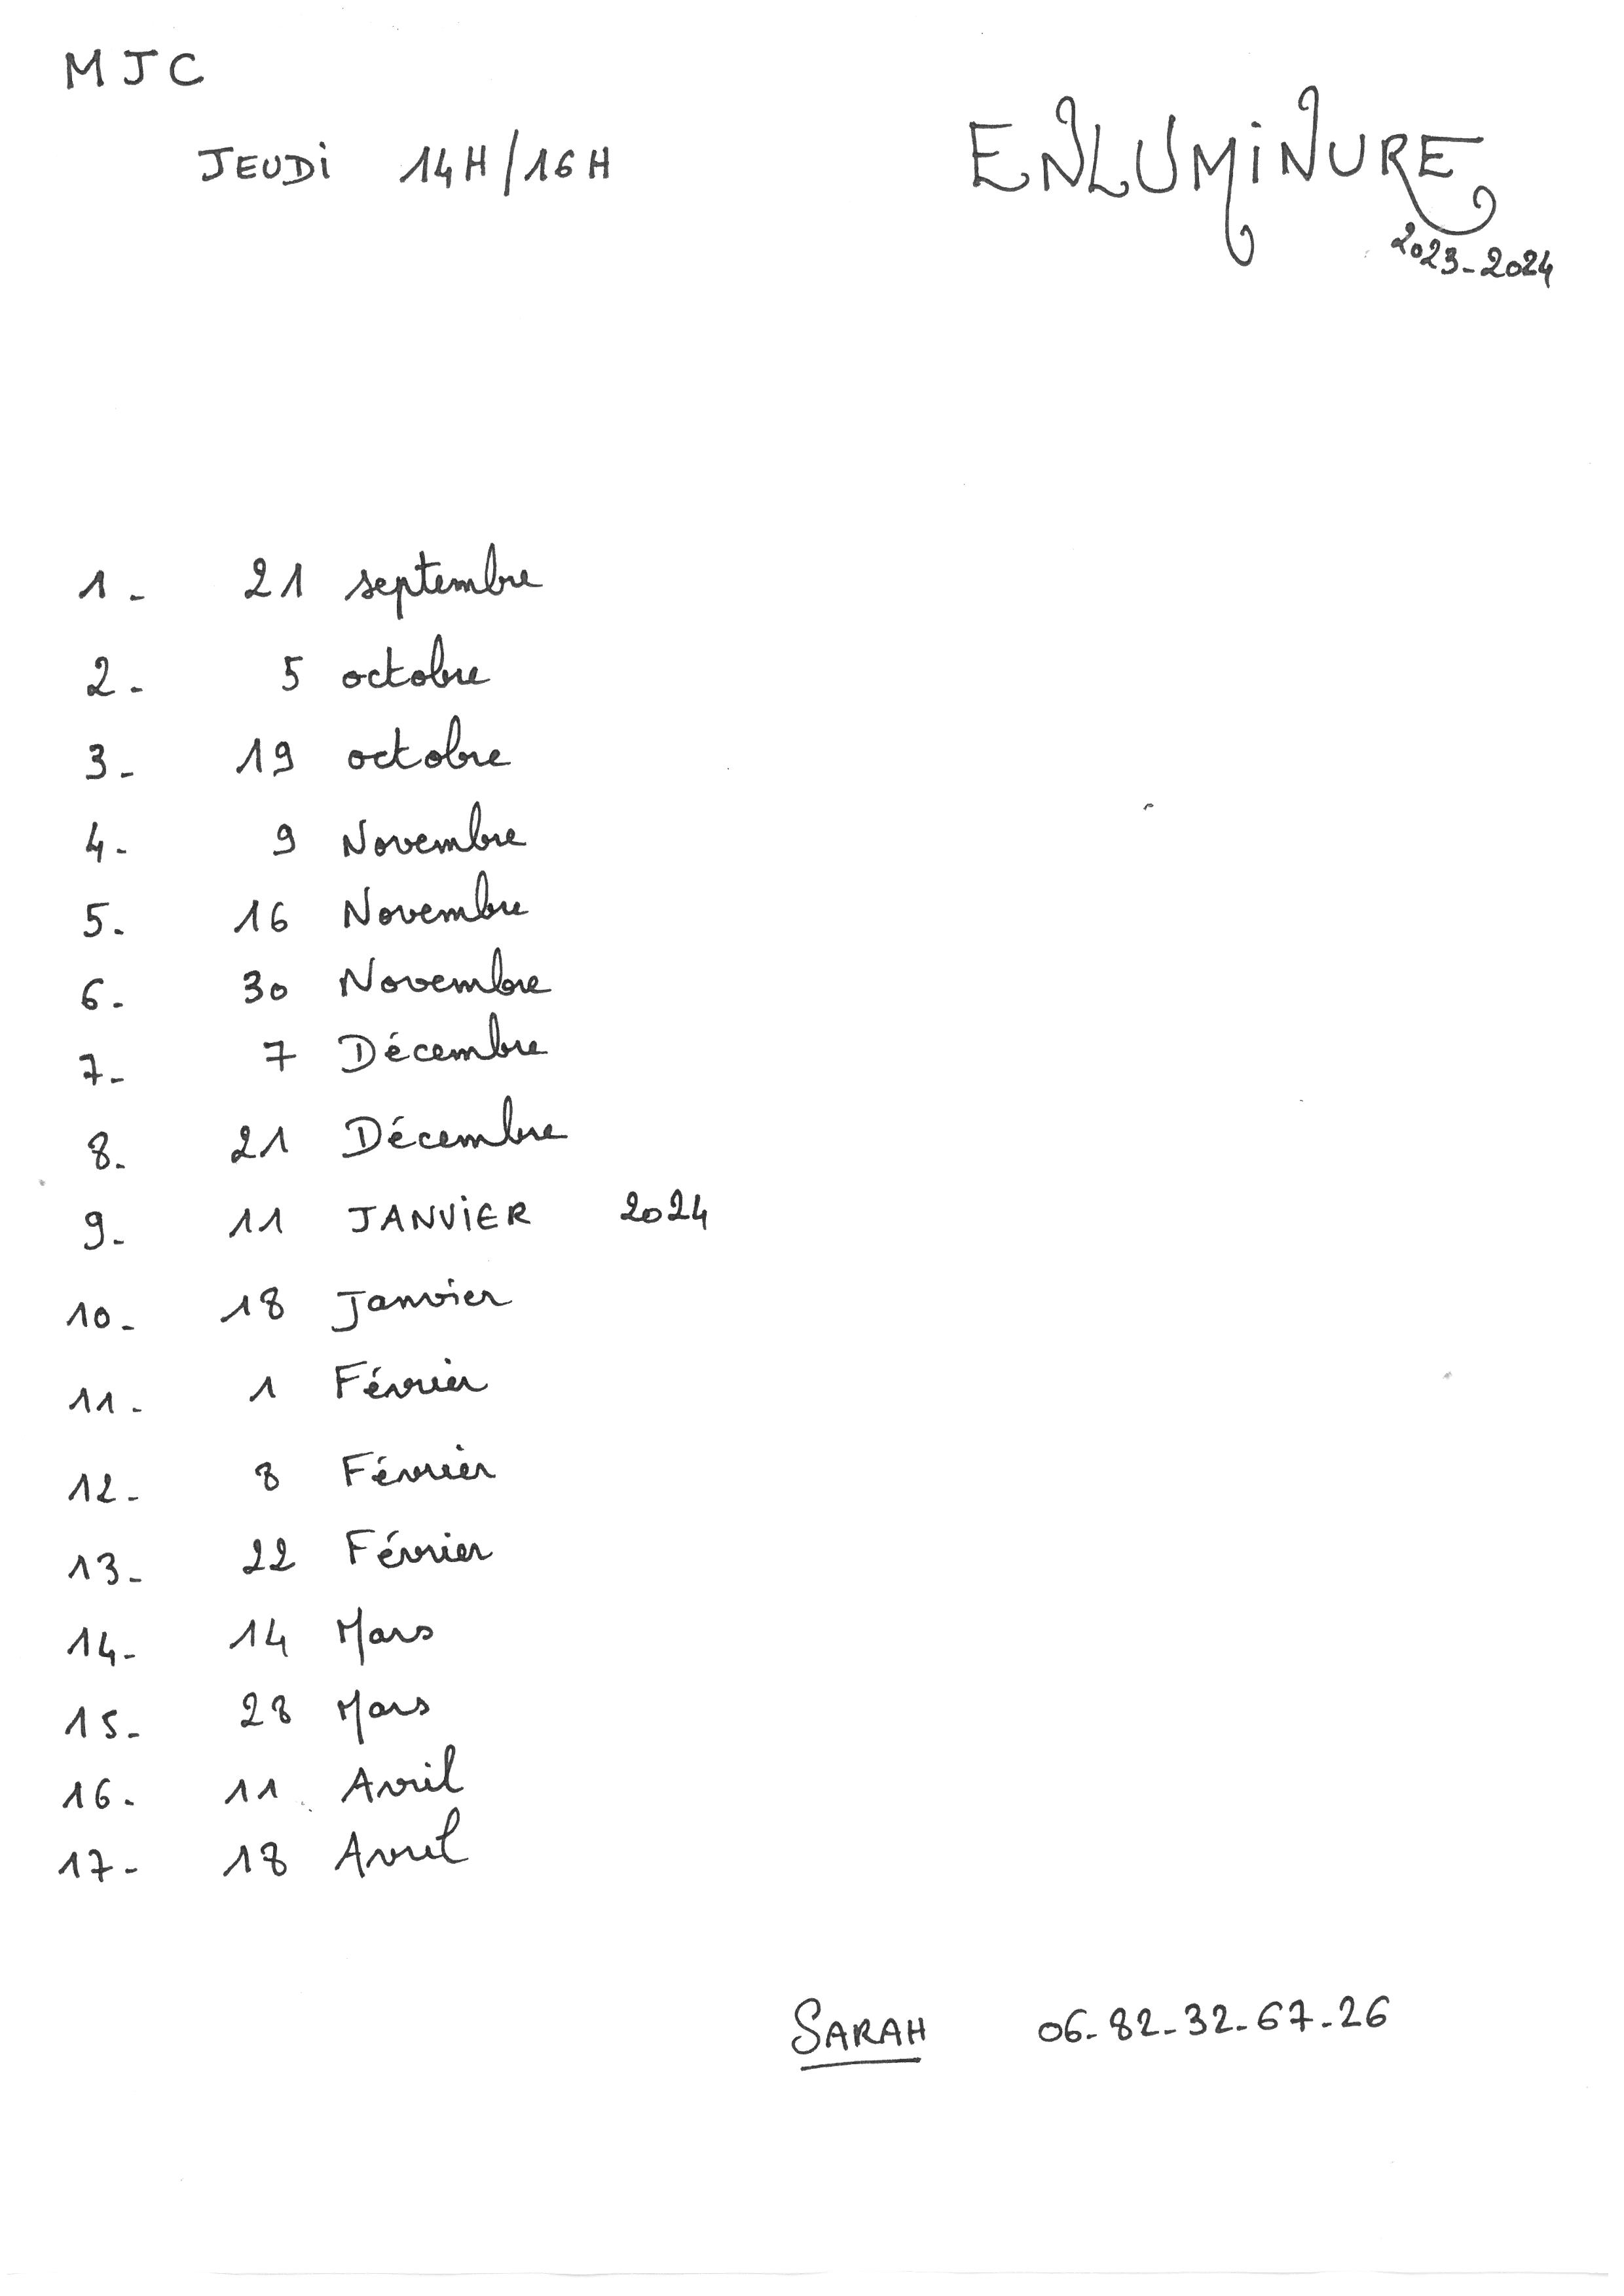 MJC
JEUDi 14H/16H
ENLUMiNURE
2023-2024
1- 21 septembre
2- 5 octobre
3- 19 octobre
4- 9 Novembre
5- 16 Novembre
6- 30 Novembre
7- 7 Décembre
8- 21 Décembre
9- 11 JANViER 2024
10- 18 Janvier
11- 1 Février
12- 8 Février
13- 22 Février
14- 14 Mars
15- 28 Mars
16- 11 Avril
17- 18 Avril
SARAH 06-82-32-67-26